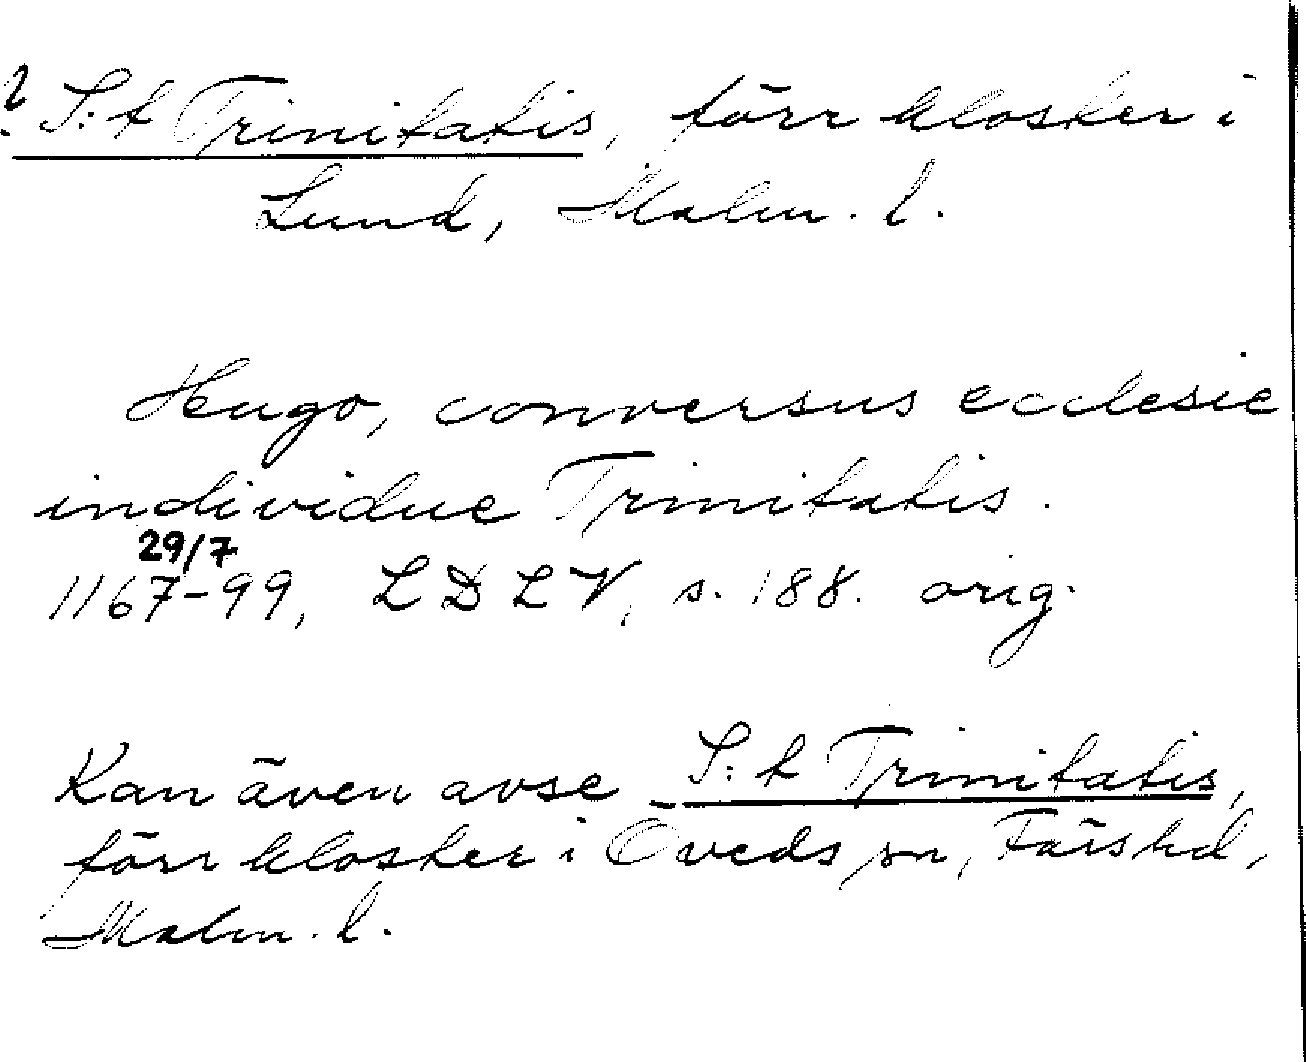 ? S:t Trinitatis, förr kloster i
Lund, Malm. l.
Hugo, conversus ecclesie
individue Trinitatis.
29/7
1167-99, LDLV, s. 188. orig.
Kan även avse S:t Trinitatis,
förr kloster i Öveds sn, Färs hd,
Malm. l.